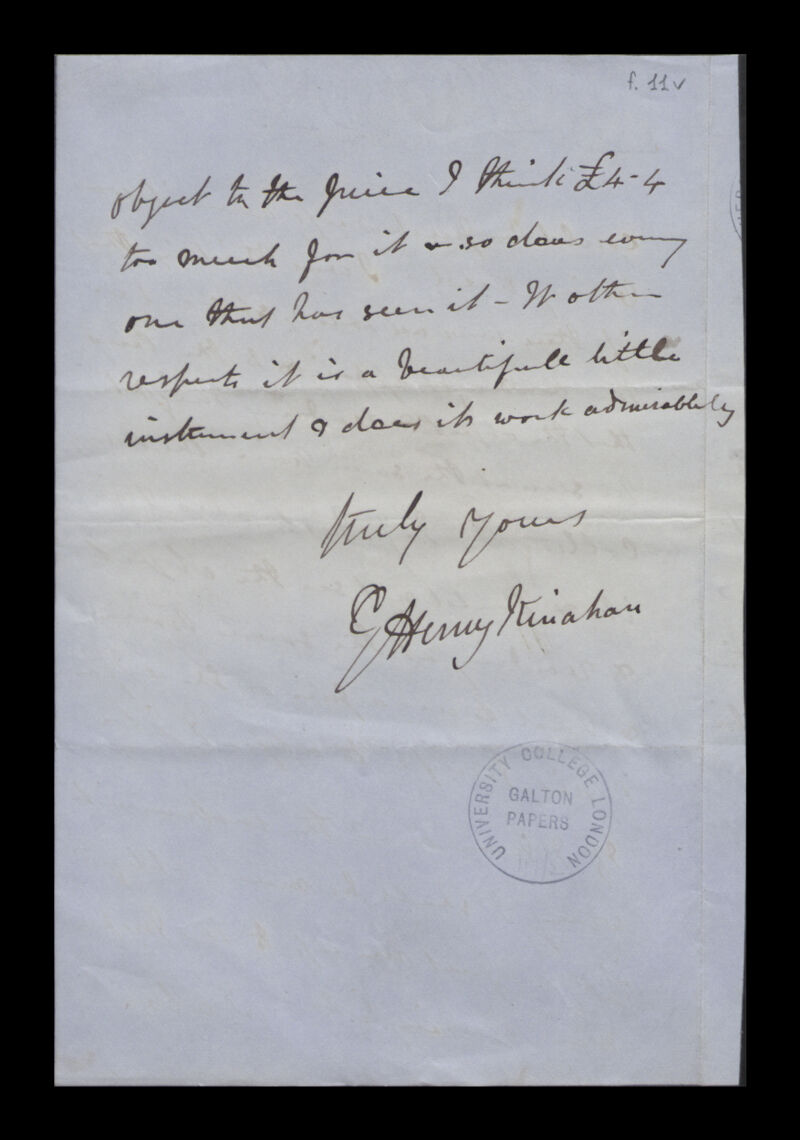 f. 11v
object to the price I think £4-4
too much for it & so does every
one that has seen it - In other
respects it is a beautifull little
instrument & does its work admirablely
truly yours
G Henry Kinahan
UNIVERSITY COLLEGE LONDON
GALTON
PAPERS